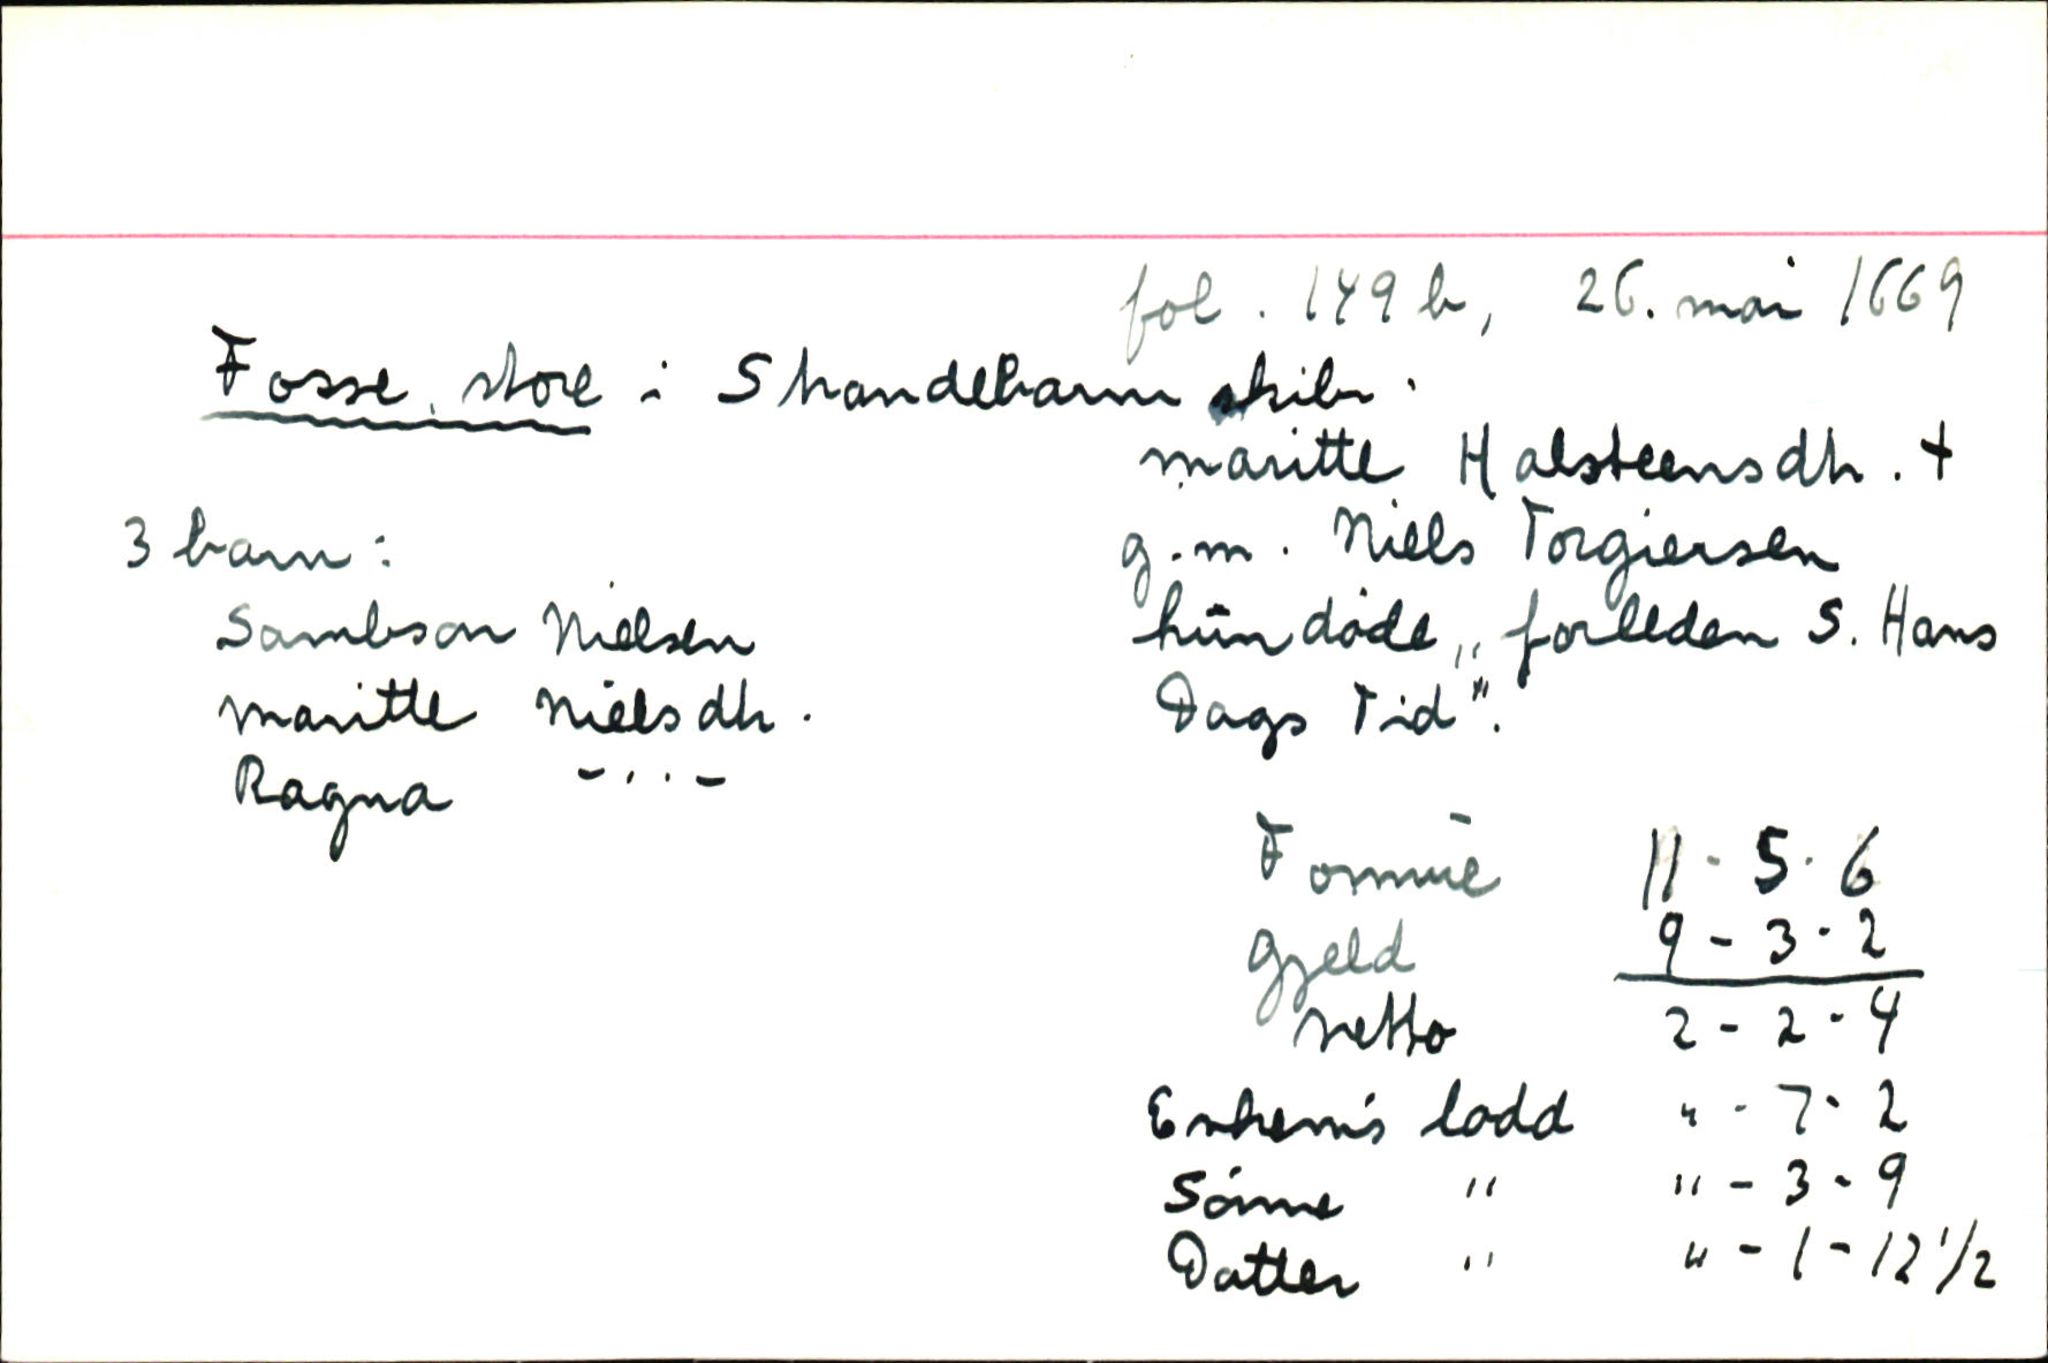 fol. 149 b, 26. mai 1669
Fosse, store i Strandebarm skibr.
Maritte Halsteensdtr. +
g.m. Niels Torgiersen
hun döde „forleden S. Hans
Dags Tid".
3 barn:
Sambson Nielsen
Maritte Nielsdtr.
Ragna -"-
Formue 11-5-6
Gjeld 9-3-2
Netto 2-2-4
Enkem's lodd "-7-2
Sönne " "-3-9
Datter " "-1-12 1/2